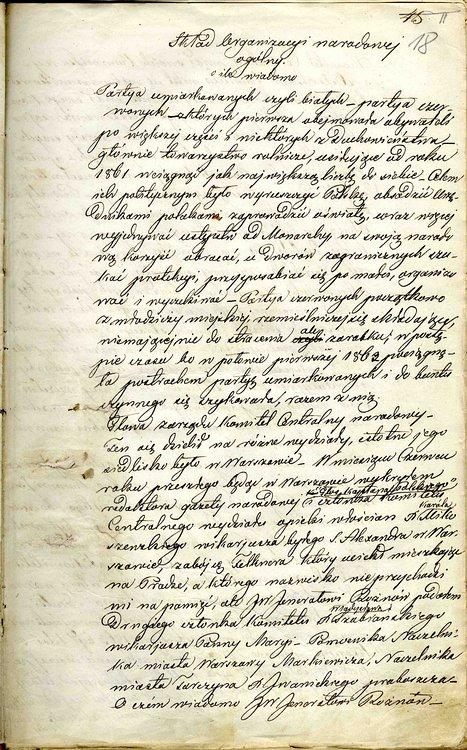 15 II
18
Skład Organizacyi narodowej
ogólny.
o ile wiadomo
Partya umiarkowanych czyli białych – partya czer-
wonych – z których pierwsza obejmowała obywateli
po większej części z niektórych z Duchowieństwa
głównie towarzystwo rolnicze, usiłujące od roku
1861 wciągnąć jak największą liczbę do siebie. Celem
ich politycznym było wyniszczyć Polskę, obsadzić Urzę-
dnikami polakami, zaprowadzić oświatę, coraz więcej
wyjednywać ustępstw od Monarchy na swoją narodo-
wą korzyść obracać, u dworów zagranicznych szu-
kać protekcyi, przysposabiać się po mału, organizo-
wać i wyczekiwać – Partya czerwonych początkowo
z młodzieży miejskiej, rzemieślniczej się składający,
niemającej nic do stracenia ale zarobku; w postę-
pie czasu bo w połowie pierwszej 1862 pociągnę-
ła postrachem partyę umiarkowanych i do buntu
czynnego się wzięła, razem z nią.
Głowa zarządu Komitet Centralny narodowy –
Ten się dzielił na różne wydziały, istotne jego
siedlisko było w Warszawie – W miesiącu Czerwcu
roku przeszłego będąc w Warszawie wykryłem
redaktora gazety narodowej
i członka Komitetu
Centralnego wydziału opieki włościan X Karola Miko
szewskiego wikarjusza byłego S. Alexandra w War-
szawie, zabójcę Felknera który uciekł mieszkający
na Pradze, a którego nazwisko nie przychodzi
mi na pamięć, ale JW Jenerałowi Rożnów podałem
Drugiego członka Komitetu X Władysława
wikarjusza Panny Maryi – Naczelni-
ka miasta Warszawy Markiewicza, Naczelnika
miasta Tarczyna X Iwanickiego proboszcza –
O czem wiadomo JW Jenerałowi Rożnów –